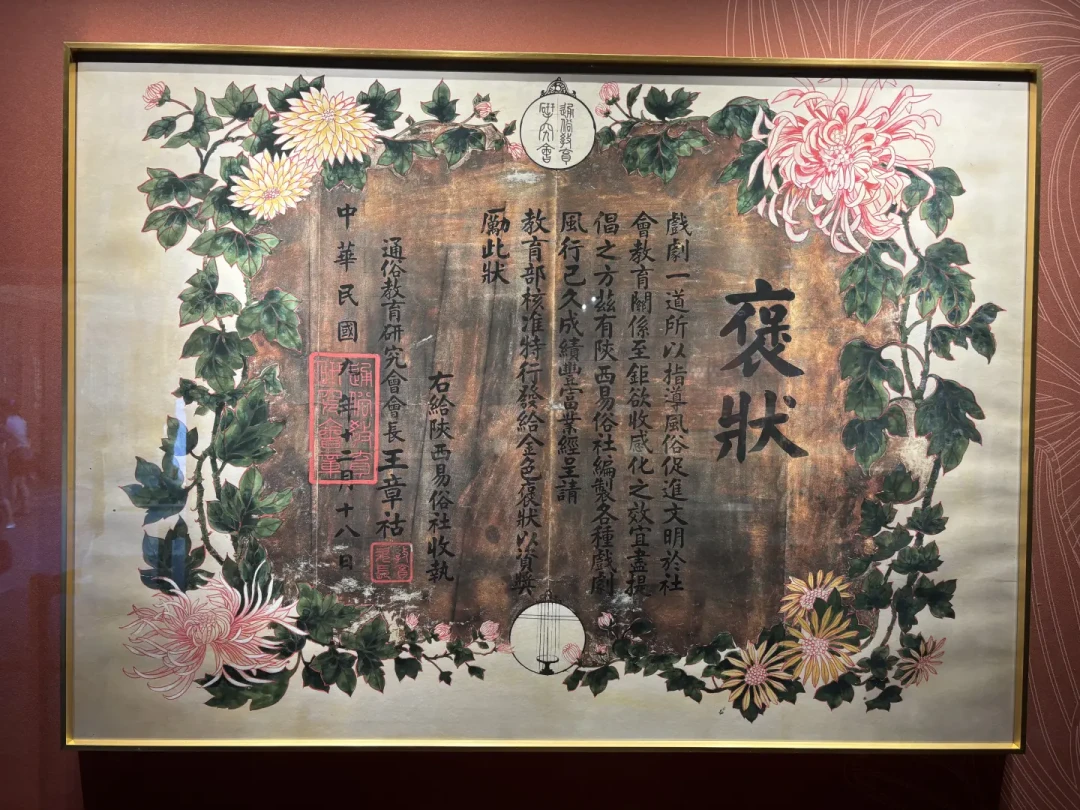 通俗教育
研究會
褒狀
戲劇一道所以指導風俗促進文明於社
會教育關係至鉅欲收感化之效宜盡提
倡之方玆有陝西易俗社編製各種戲劇
風行已久成績豐富業經呈請
教育部核准特行發給金色褒狀以資奬
勵此狀
右給陝西易俗社收執
通俗教育研究會會長王章祜
中華民國九年十二月十八日
通俗教育
研究會章